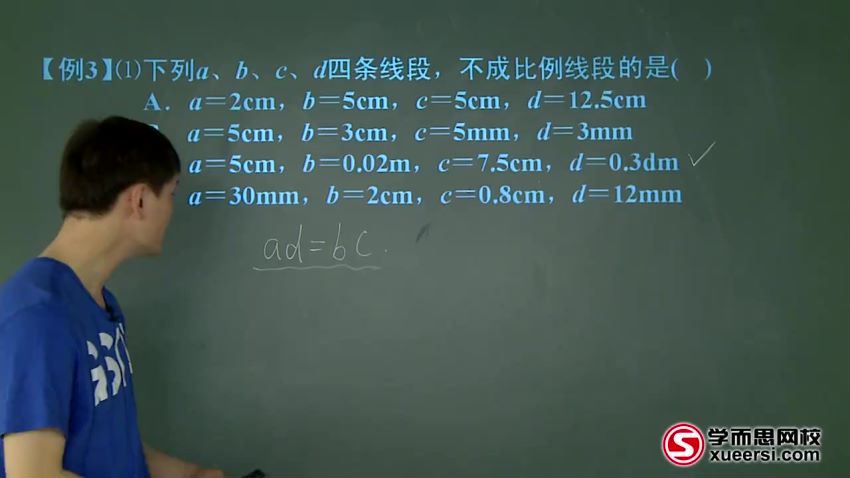 【例3】⑴下列a、b、c、d四条线段，不成比例线段的是(　)
A．a＝2cm，b＝5cm，c＝5cm，d＝12.5cm
a＝5cm，b＝3cm，c＝5mm，d＝3mm
a＝5cm，b＝0.02m，c＝7.5cm，d＝0.3dm ✓
a＝30mm，b＝2cm，c＝0.8cm，d＝12mm
ad=bc.
学而思网校
xueersi.com